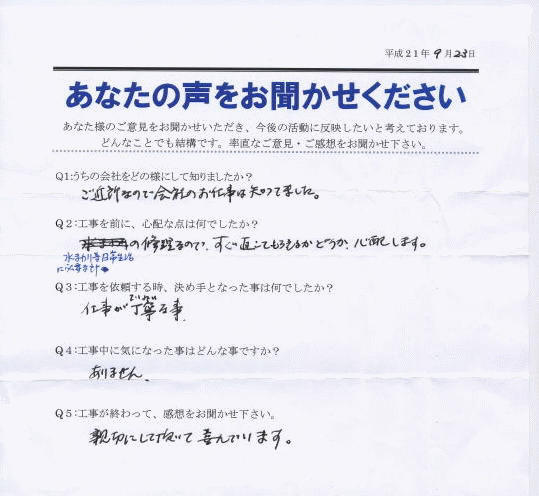 平成21年 9月 23日
あなたの声をお聞かせください
あなた様のご意見をお聞かせいただき、今後の活動に反映したいと考えております。
どんなことでも結構です。率直なご意見・ご感想をお聞かせ下さい。
Q1:うちの会社をどの様にして知りましたか？
ご近所なので会社のお仕事は知ってました。
Q2:工事を前に、心配な点は何でしたか？
の修理なので、すぐ直してもらえるかどうか、心配します。
水まわり等日常生活
に必要な
Q3:工事を依頼する時、決め手となった事は何でしたか？
ていねい
仕事が丁寧な事
Q4:工事中に気になった事はどんな事ですか？
ありません。
Q5:工事が終わって、感想をお聞かせ下さい。
親切にして頂いて喜んでいます。